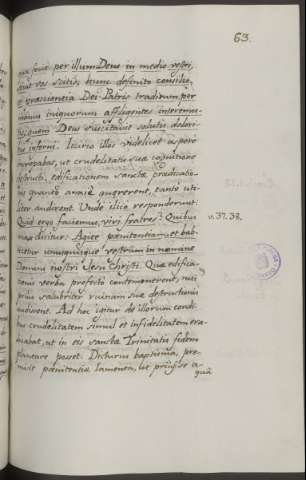 63.
quæ fecit per illum Deus in medio vestri,
sicut vos scitis, hunc definito consilio,
et præscientia Dei Patris traditum per
manus iniquorum affligentes interemis-
tis, quem Deus suscitavit solutis dolori-
bus inferni. Initio illos videlicet asperis
increpabat, ut crudelitatis suæ cognitione
instructi, edificationem sanctæ prædicatio-
nis quanto anxiè quærerent, tanto uti-
liter audirent. Unde illicò responderunt:
Quid ergo faciemus, viri fratres? Quibus
mox dicitur: Agite pœnitentiam et bab-
tizetur unusquisque vestrum in nomine
Domini nostri Jesu Christi. Quæ edifica-
tionis verba profecto contemnerent, nisi
prius salubriter ruinam suæ detructionis
invenirent. Ad hoc igitur de illorum cordi-
bus crudelitatem simul et infidelitatem era-
dicabat, ut in eis sanctæ Trinitatis fidem
plantare posset. Dicturus baptisma, præ-
misit pœnitentiæ lamenta, ut priùs se a-
quâ
v. 37. 38.